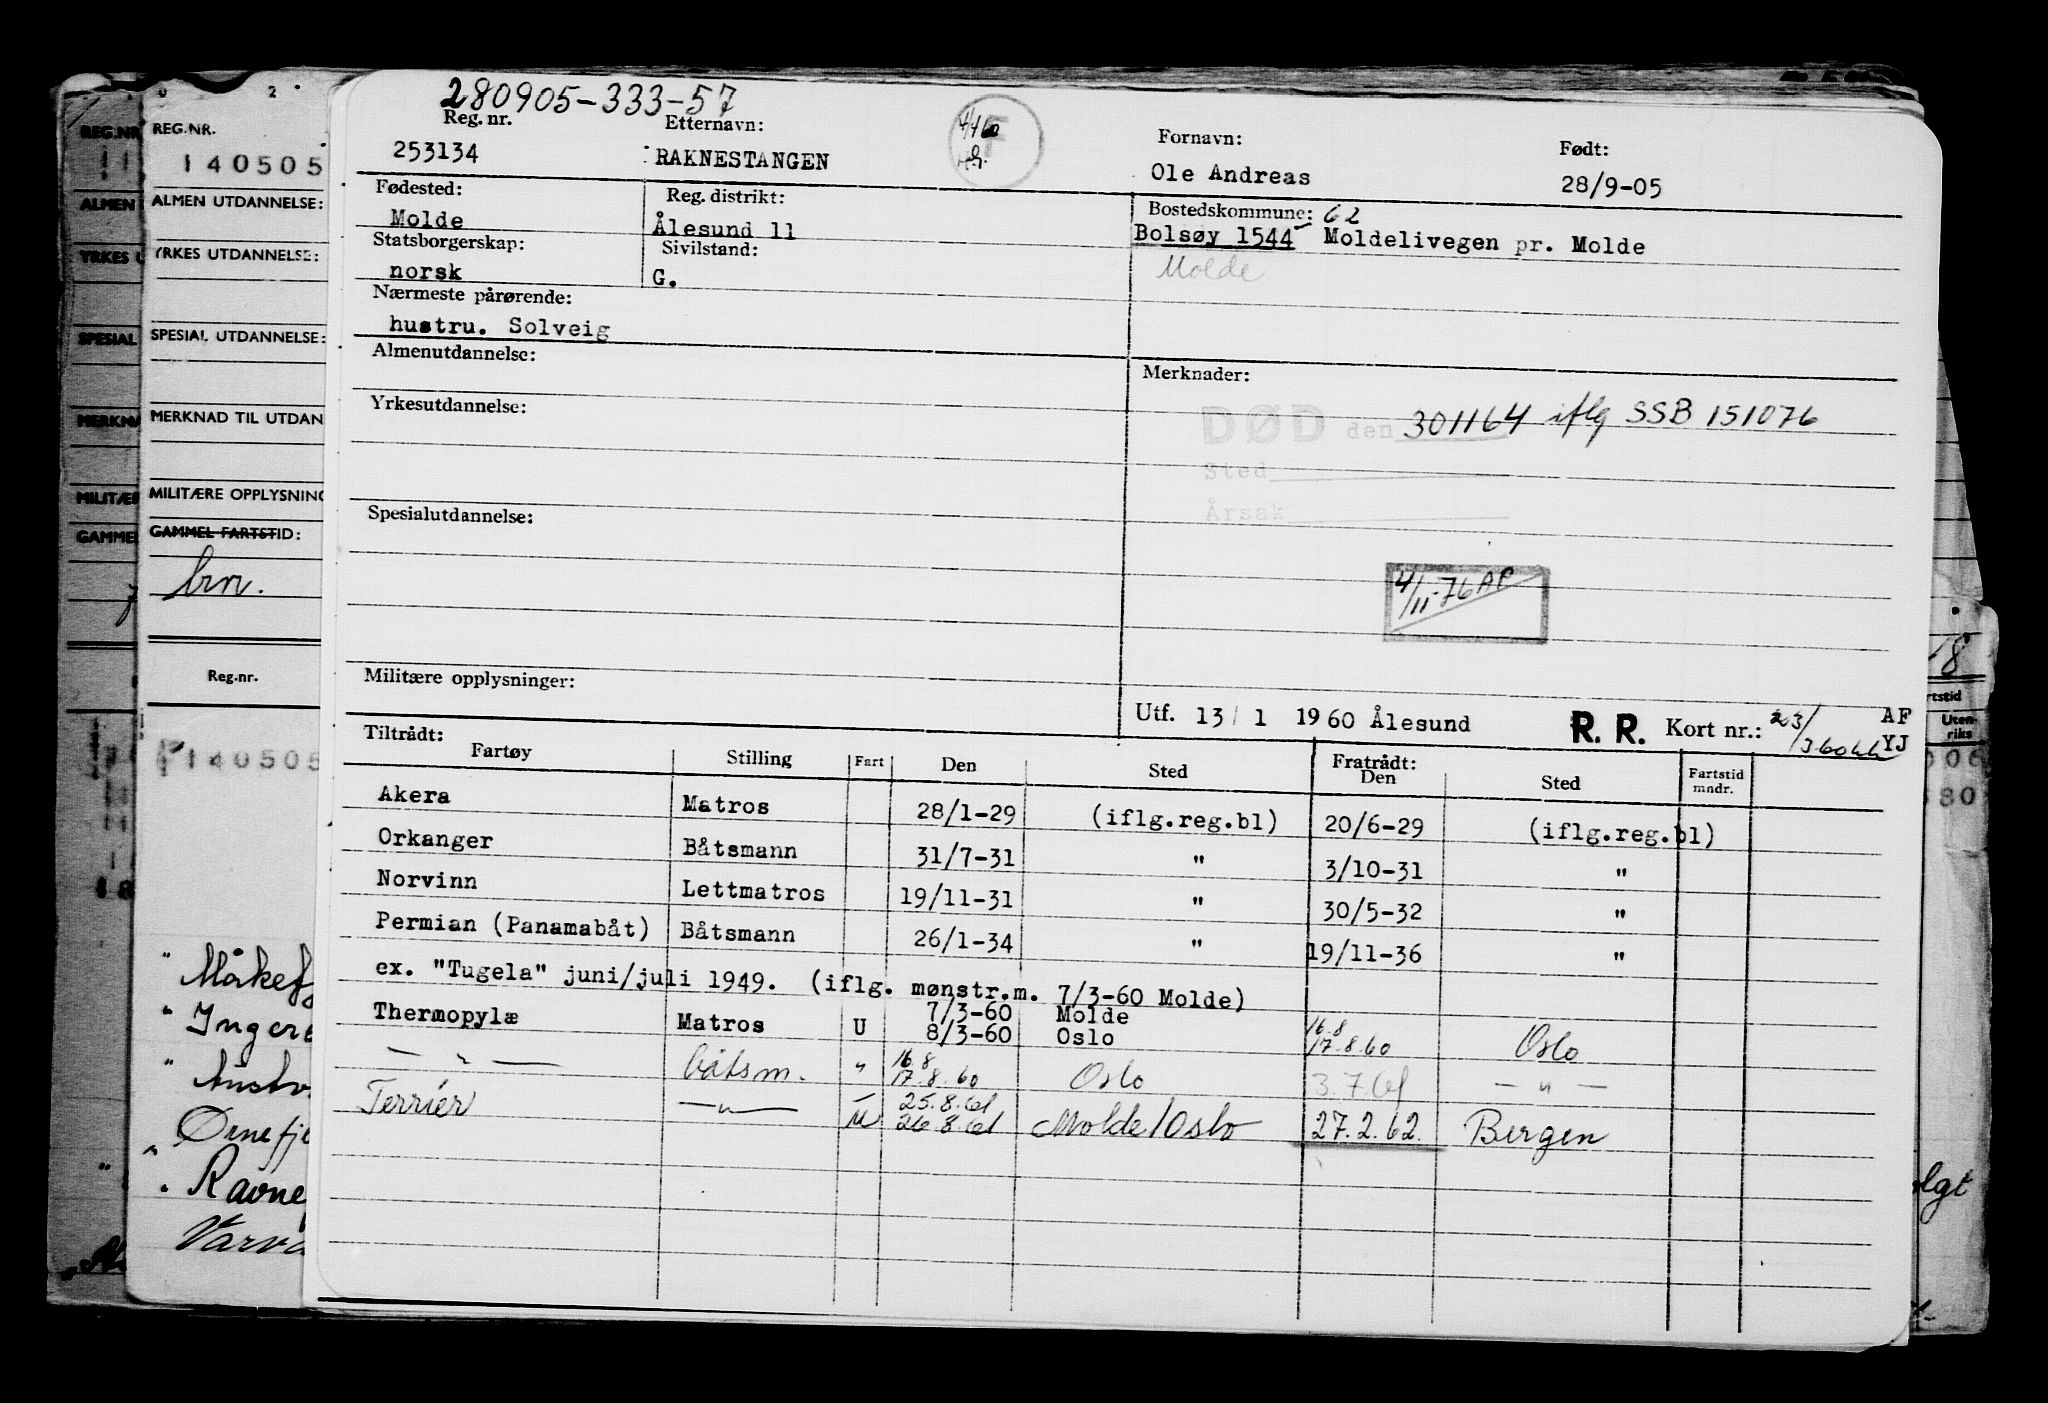 280905-333-57
Reg. nr. Etternavn: Fornavn: Født:
253134 RAKNESTANGEN F Ole Andreas 28/9-05
Fødested: Reg. distrikt: Bostedskommune: 62
Molde Ålesund 11 Bolsøy 1544 Moldelivegen pr. Molde
Statsborgerskap: Sivilstand: Molde
norsk G.
Nærmeste pårørende:
hustru. Solveig
Almenutdannelse: Merknader:
Yrkesutdannelse: DØD den 301164 iflg SSB 151076
Sted
Årsak
Spesialutdannelse:
4/11-76 AP
Militære opplysninger:
Utf. 13/1 1960 Ålesund R. R. Kort nr.: AF
YJ
Tiltrådt: Fratrådt:
Fartøy Stilling Fart Den Sted Den Sted Fartstid mndr.
Akera Matros 28/1-29 (iflg.reg.bl) 20/6-29 (iflg.reg.bl)
Orkanger Båtsmann 31/7-31 " 3/10-31 "
Norvinn Lettmatros 19/11-31 " 30/5-32 "
Permian (Panamabåt) Båtsmann 26/1-34 " 19/11-36 "
ex. "Tugela" juni/juli 1949. (iflg. mønstr.m. 7/3-60 Molde)
7/3-60 Molde 16.8
Thermopylæ Matros U 8/3-60 Oslo 17.8.60 Oslo
16.8
— " — båtsm. " 17.8.60 Oslo 3.7.61 — " —
25.8.61
Terrier — " — U 26.8.61 Molde/Oslo 27.2.62. Bergen
REG.NR.
140505
ALMEN UTDANNELSE:
YRKES UTDANNELSE:
SPESIAL UTDANNELSE:
MERKNAD TIL UTDAN
MILITÆRE OPPLYSNING
GAMMEL FARTSTID:
Reg.nr.
140505
" Ingere
Ørnefj
Varva
REG.NR
ALMEN
YRKES U
SPESIAL
MERKNA
MILITÆR
GAMMEL
18
rtstid
Uten-
riks
006
880
olgt